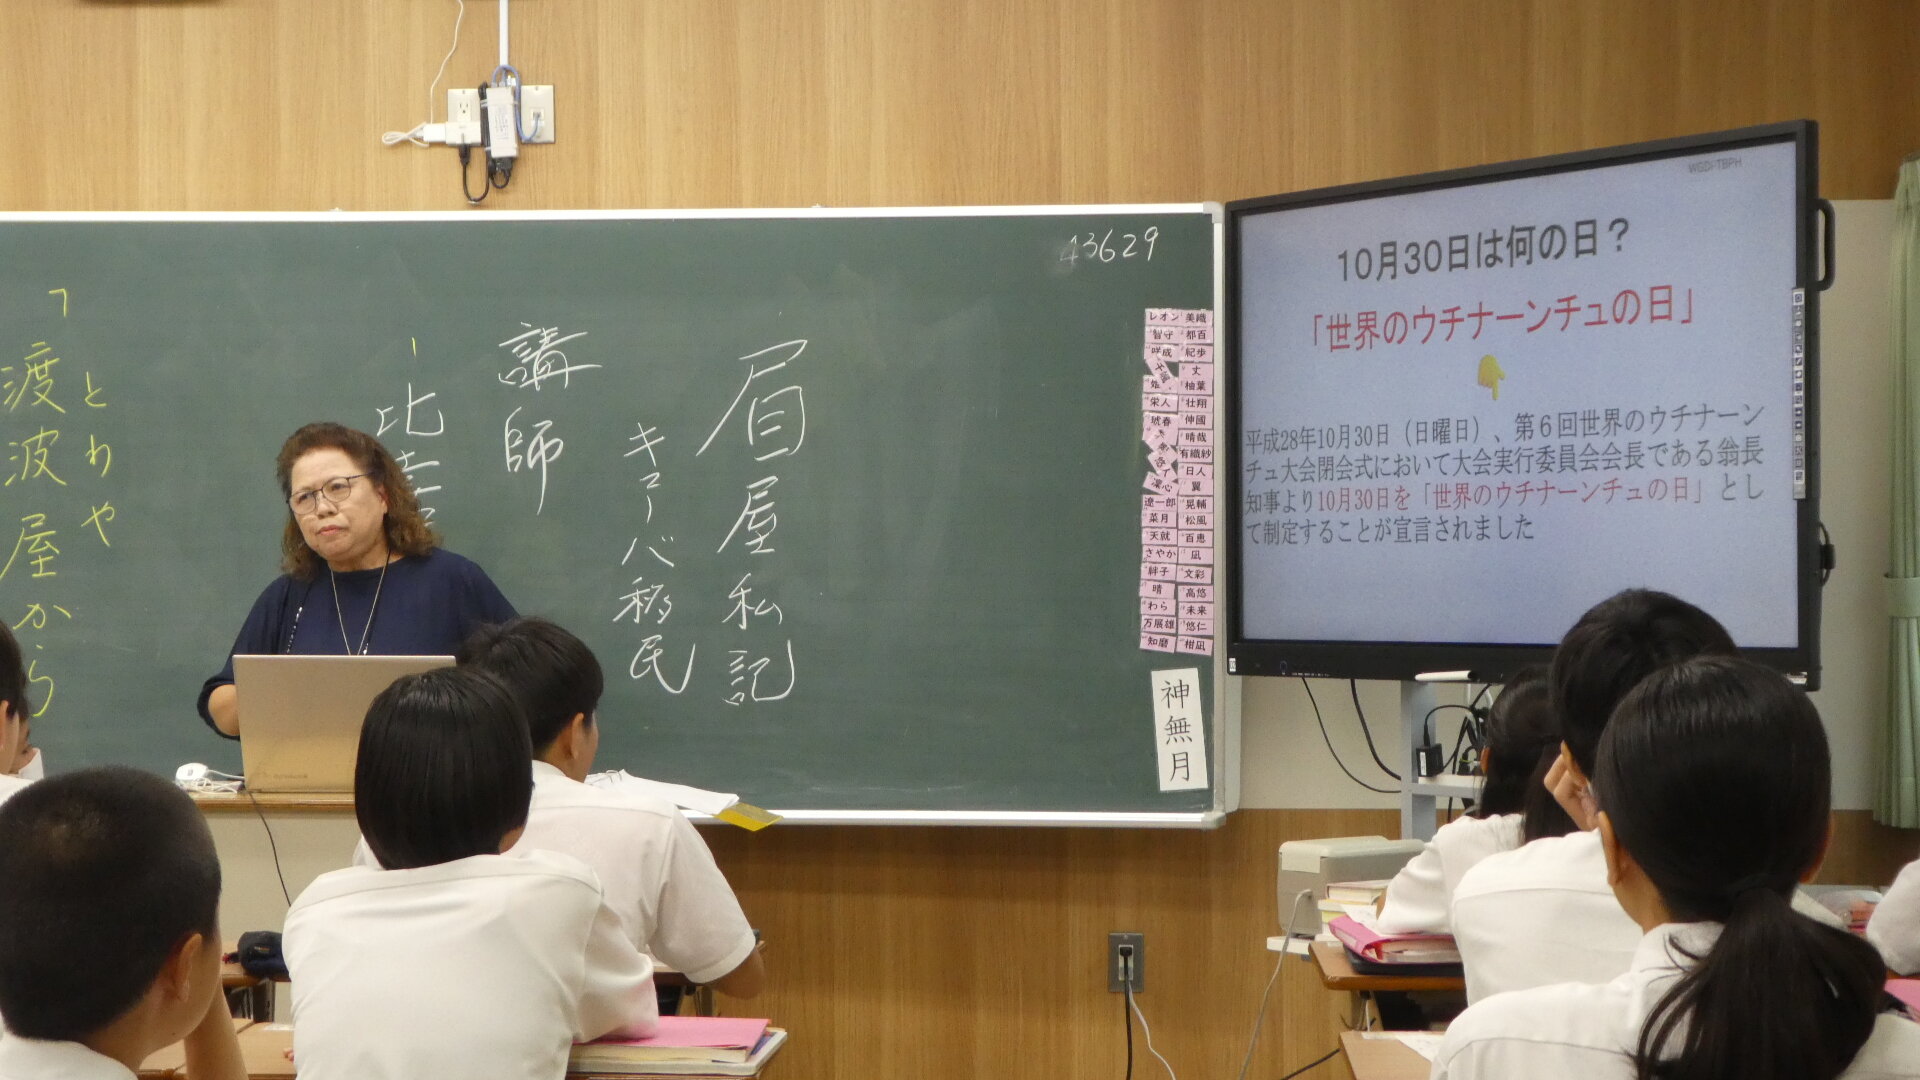 WGDI-TBPH
10月30日は何の日？
「世界のウチナーンチュの日」
平成28年10月30日（日曜日）、第６回世界のウチナーン
チュ大会閉会式において大会実行委員会会長である翁長
知事より10月30日を「世界のウチナーンチュの日」とし
て制定することが宣言されました
43629
眉屋私記
キューバ移民
講師
比嘉
とわや
「渡波屋から
レオン 美織
智守 都百
咲成 紀歩
丈
柚葉
栄人 壮翔
琥春 伸國
晴哉
有織紗
日人
凜心 翼
遼一郎 晃輔
菜月 松風
天就 百恵
さやか 凪
絆子 文彩
晴 高悠
わら 未来
万展雄 悠仁
知磨 柑凪
神無月